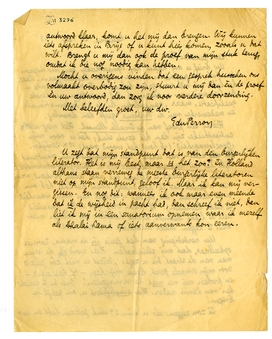 3296
antwoord klaar, komt u het mij dan brengen. Wij kunnen
iets afspreken in Brus of u kunt hier komen, zooals u dat
wilt. Brengt u mij dan ook de proef van mijn stuk terug,
omdat ik die nog noodig kan hebben.
Mocht u overigens vinden dat een gesprek tusschen ons
volmaakt overbodig zou zijn, stuurt u mij dan in de proef
en uw antwoord, dan zorg ik voor verdere doorzending.
Met beleefden groet, uw dw.
EduPerron
U zegt dat mijn standpunt dat is van den burgerlijken
literator. Het is mij best, maar is het zoo? In Holland
althans staan verreweg de meeste burgerlijke literatoren
niet op mijn standpunt, geloof ik. Maar ik kan mij ver-
gissen. En nog iets: wanneer ik ook maar even meende
dat ik de wijsheid in pacht had, dan schreef ik niet, dan
liet ik mij in een sanatorium opnemen waar ik mezelf
als Dhalai Lama of iets aanverwants kon eeren.